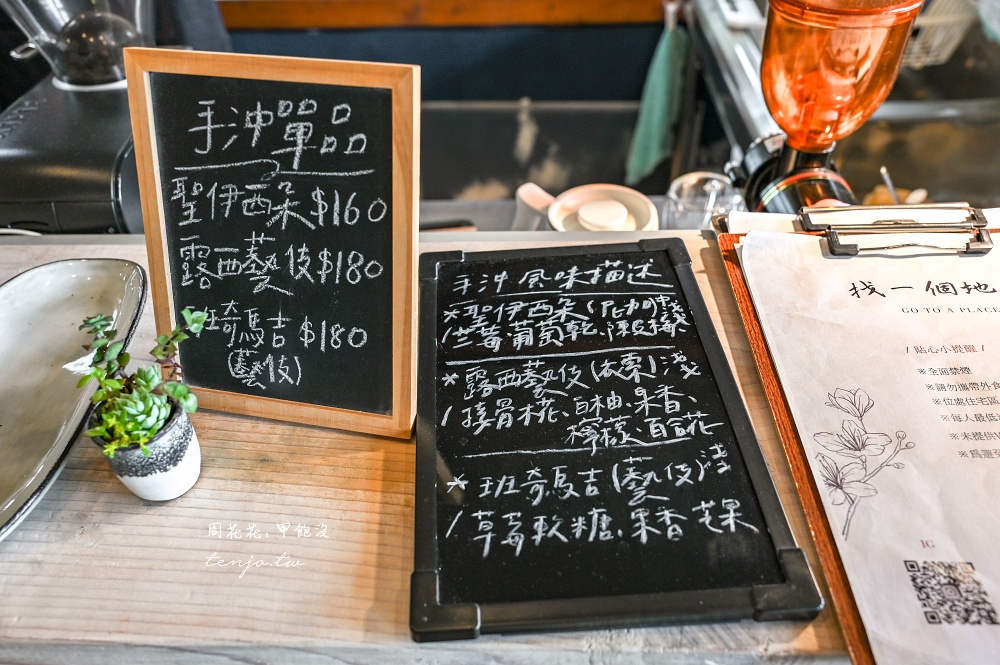 手沖單品
聖伊西朵$160
露西藝伎$180
班奇馬吉$180
(藝伎)
手沖風味描述
*聖伊西朵(尼加)中淺
/蘭莓葡萄乾、陳皮橡
*露西藝伎(衣索)淺
/接骨木花、白柚、果香、
檸檬、百合花
*班奇馬吉(藝伎)淺
/草莓軟糖、果香芒果
找一個地
GO TO A PLACE
/ 貼心小提醒 /
※全面禁煙
※請勿攜帶外食
※位處住宅區
※每人最低消
※未提供
※為避免
IG
周花花，甲飽沒
tenjo.tw